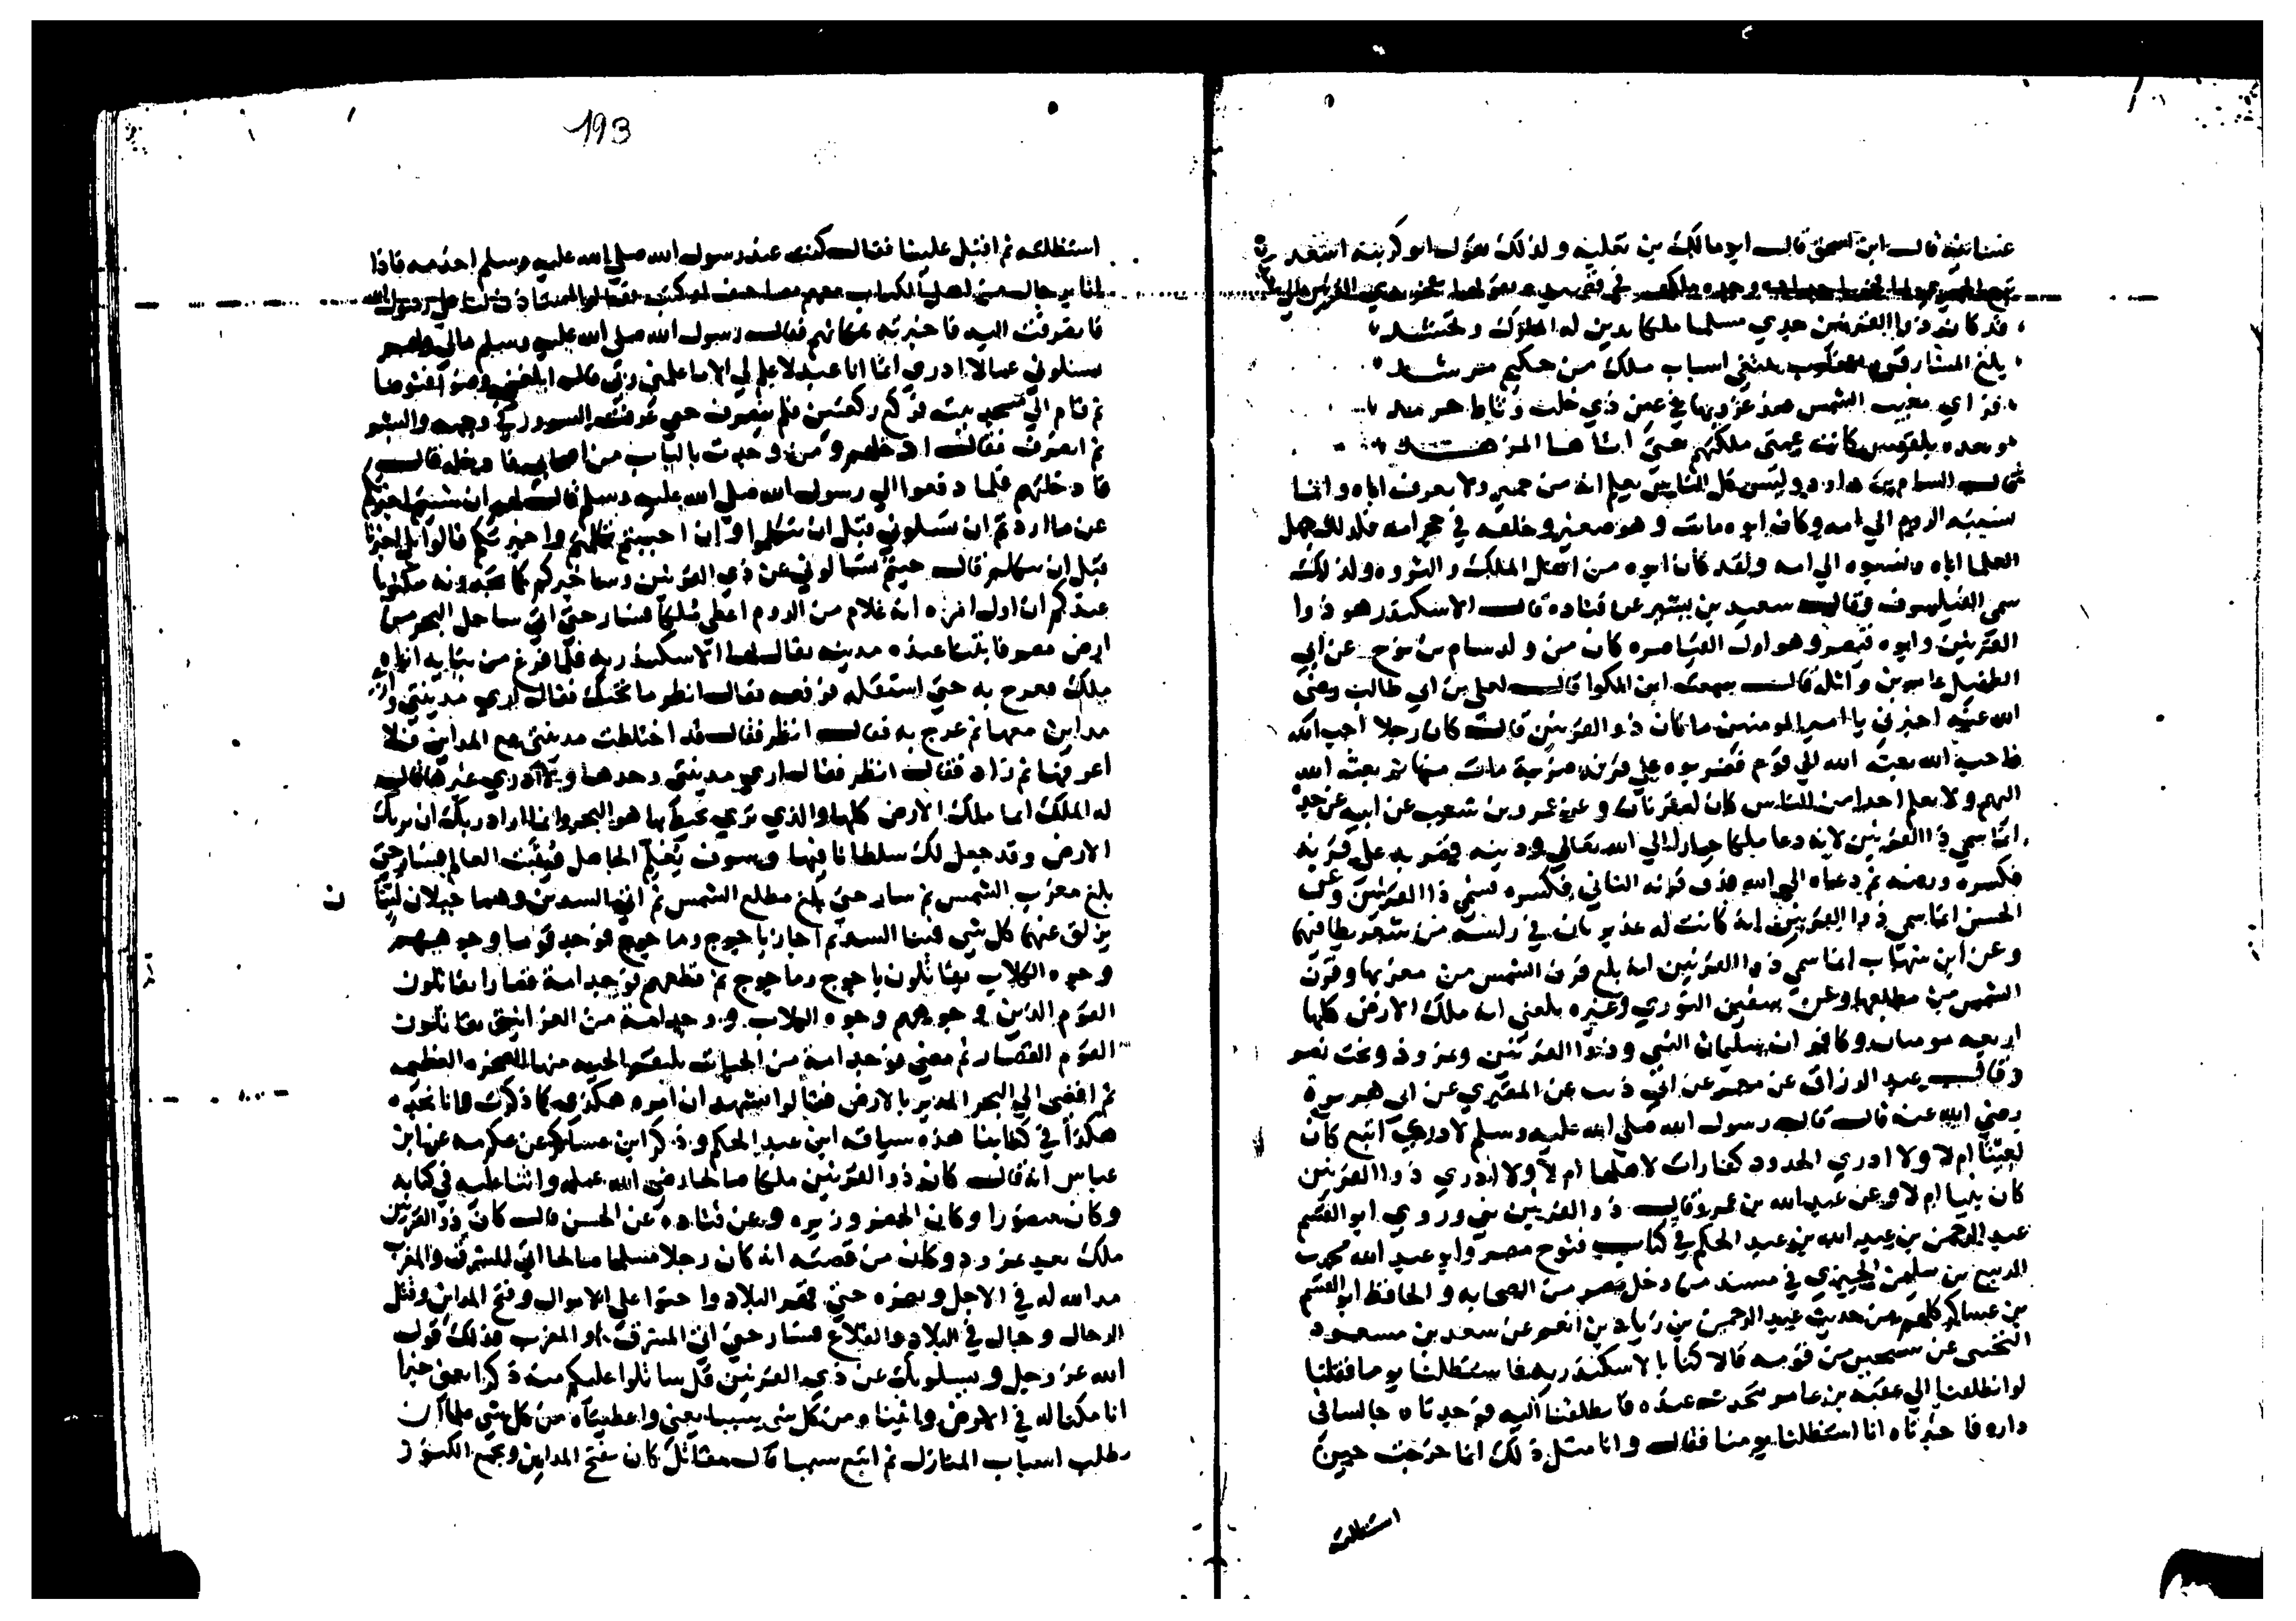 قال ابن اسحق قال ابو مالك بن ثعلبه ولذلك يقول ابو كربه اسعد
قد كان ذو القرنين جدي مسلما ملكا تدين له الملوك وتحتشد
بلغ المشارق والمغارب يبتغي اسباب ملك من حكيم مرشد
فراي مغيب الشمس عند غروبها في عين ذي خلب وثاط حرمد
من بعده بلقيس كانت عمتي ملكتهم حتي اتاها الهدهد
وليس كل الناس يعلم انه من حمير ولا يعرف اباه وانما
نسبته الروم الي امه وكان ابوه مات وهو صغير وخلفه في حجر امه فلذلك جهل
العلما اباه ونسبوه الي امه ولقد كان ابوه من اهل الملك والثروه ولذلك
سمي الفيلسوف وقال سعيد بن بشير عن قتاده قال الاسكندر هو ذوا
القرنين وابوه قيصر وهو اول القياصره كان من ولد سام بن نوح عن ابي
الطفيل عامر بن واثله قال سمعت ابن الكوا قال لعلي بن ابي طالب رضي
الله عنه اخبرني يا امير المومنين ما كان ذو القرنين قال كان رجلا احب الله
فاحبه الله بعثه الله الي قوم فضربوه علي قرنه ضربة مات منها ثم بعثه الله
اليهم ولا يعلم احد من الناس كان له قرنان وعن عمرو بن شعيب عن ابيه عن جده
انما سمي ذا القرنين لانه دعا ملكا جبارا الي الله تعالي ودينه فضربه علي قرنه
فكسره ورضه ثم دعاه الي الله فدق قرنه الثاني فكسره فسمي ذا القرنين وعن
الحسن انما سمي ذوا القرنين انه كانت له غديرتان في راسه من شعر يطا فيهما
وعن ابن شهاب انما سمي ذو القرنين انه بلغ قرن الشمس من مغربها وقرن
الشمس من مطلعها وعن سفين الثوري وغيره بلغني انه ملك الارض كلها
اربعه مومنان وكافران سليمان النبي وذو القرنين ونمرود وبخت نصر
وقال عبد الرزاق عن معمر عن ابن ابي ذيب عن المقبري عن ابي هريرة
رضي الله عنه قال قال رسول الله صلي الله عليه وسلم لا ادري اتبع كان
لعينا ام لا ولا ادري الحدود كفارات لاهلها ام لا ولا ادري ذوا القرنين
كان نبيا ام لا وعن عبد الله بن عمرو قال ذو القرنين نبي وروي ابو القسم
عبد الرحمن بن عبد الله بن عبد الحكم في كتاب فتوح مصر وابو عبد الله محمد بن
الربيع بن سليمن الجيزي في مسند من دخل مصر من الصحابه والحافظ ابو القسم
بن عساكر كلهم من حديث عبد الرحمن بن زياد بن انعم عن سعد بن مسعود
التجيبي عن شيخين من قومه قالا كنا بالاسكندريه فاستطلنا يومنا فقلنا
لو انطلقنا الي عقبه بن عامر نتحدث عنده فانطلقنا اليه فوجدناه جالسا في
داره فاخبرناه انا استطلنا يومنا فقال وانا مثل ذلك انما خرجت حين
استطلته
193
استطلته ثم اقبل علينا فقال كنت عند رسول الله صلي الله عليه وسلم اخدمه فاذا
انا برجال من اهل الكتاب معهم مصاحف او كتب فقالوا استاذن لنا علي رسول الله
فانصرفت اليه فاخبرته بمكانهم فقال رسول الله صلي الله عليه وسلم مالي ولهم
يسلوني عما لا ادري انما انا عبد لا علم لي الا ما علمني ربي ثم قال ابلغني وضوا فتوضا
ثم قام الي مسجد بيته فركع ركعتين فلم ينصرف حتي عرفت السرور في وجهه والبشر
ثم انصرف فقال ادخلهم ومن وجدت بالباب من اصحابي فادخله قال
فادخلتهم فلما دفعوا الي رسول الله صلي الله عليه وسلم قال لهم ان شيتم اخبرتكم
عن ما اردتم ان تسلوني قبل ان تتكلموا وان احببتم تكلمتم واخبرتكم قالوا بل اخبرنا
قبل ان نتكلم قال جيتم تسالوني عن ذي القرنين وساخبركم كما تجدونه مكتوبا
عندكم ان اول امره انه غلام من الروم اعطي ملكا فسار حتي اتي ساحل البحر من
ارض مصر فابتنا عنده مدينه يقال لها الاسكندريه فلما فرغ من بنايه اتاه
ملك فعرج به حتي استقله فرفعه فقال انظر ما تحتك فقال اري مدينتي واري
مداين معها ثم عرج به فقال انظر فقال قد اختلطت مدينتي مع المداين فلا
اعرفها ثم زاد فقال انظر فقال اري مدينتي وحدها ولا اري غيرها فقال
له الملك انما تلك الارض كلها والذي تري يحيط بها هو البحر وانما اراد ربك ان يريك
الارض وقد جعل لك سلطانا فيها وسوف يعلم الجاهل ويثبت العالم فسار حتي
بلغ مغرب الشمس ثم سار حتي بلغ مطلع الشمس ثم اتي السدين وهما جبلان لينا ن
يزلق عنهما كل شي فبنا السد ثم اجاز ياجوج وماجوج فوجد قوما وجوههم
وجوه الكلاب يقاتلون ياجوج وماجوج ثم قطعهم فوجد امة قصارا يقاتلون
القوم الذين وجوههم وجوه الكلاب ووجد امة من الغرانيق يقاتلون
القوم القصار ثم مضي فوجد امة من الحيات تلتقم الحيه منها الصخره العظيمه
ثم افضي الي البحر المدير بالارض فقالوا نشهد ان امره هكذي كما ذكرت وانا نجده
هكذا في كتابنا هذه سياقه ابن عبد الحكم وذكر ابن عساكر عن عكرمه عن ابن
عباس انه قال كان ذو القرنين ملكا صالحا رضي الله عمله واثنا عليه في كتابه
وكان منصورا وكان الخضر وزيره وعن قتاده عن الحسن قال كان ذو القرنين
ملك بعد نمرود وكان من قصته انه كان رجلا مسلما صالحا اتي المشرق والمغرب
مد الله له في الاجل ونصره حتي قهر البلاد واحتوا علي الاموال وفتح المداين وقتل
الرجال وجال في البلاد والقلاع فسار حتي اتي المشرق والمغرب فذلك قول
الله عز وجل ويسلونك عن ذي القرنين قل ساتلوا عليكم منه ذكرا يعني خبرا
انا مكنا له في الارض واتيناه من كل شي سببا يعني واعطيناه من كل شي علما ان
يطلب اسباب المنازل ثم اتبع سببا قال مقاتل كان يفتح المداين ويجمع الكنوز